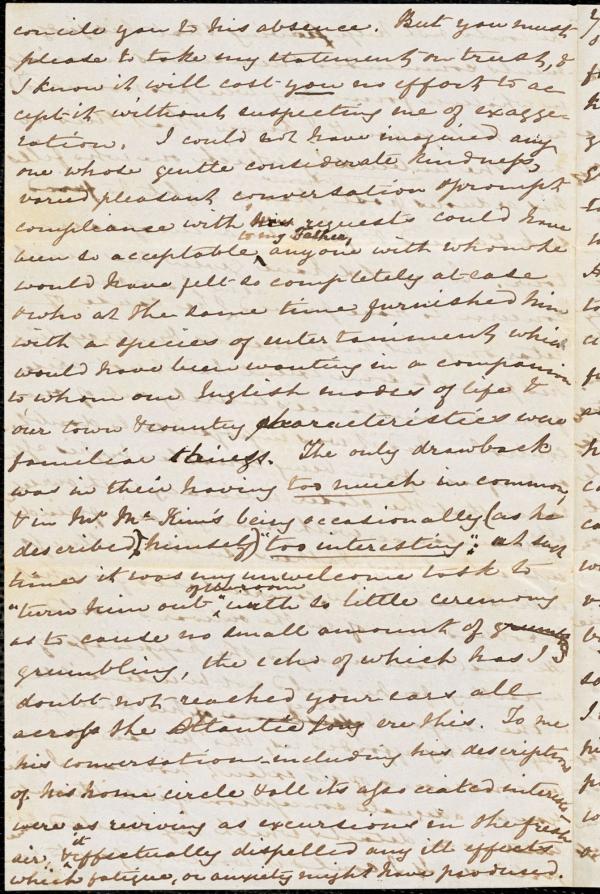 concile you to his absence. But you must
please to take my statement on trust, &
I know it will cost you no effort to ac
cept it without suspecting me of exagge-
ration. I could not have imagined any
one whose gentle considerate kindness,
varied pleasant conversation & prompt
compliance with his requests could have
to my Father,
been so acceptable, anyone with whom he
would have felt so completely at ease
& who at the same time furnished him
with a species of entertainment which
would have been wanting in a companion
to whom our English modes of life &
our town & country characteristics were
familiar things. The only drawback
was in their having too much in common,
& in Mr. McKim's being occasionally (as he
described himself) "too interesting": at such
times it was my unwelcome task to
"turn him out" with so little ceremony
as to cause no small amount of
grumbling, the echo of which has I
doubt not reached your ears all
across the Atlantic long ere this. To me
his conversation including his description
of his home circle & all its associated interests
were as reviving as excursions in the fresh
air, & it effectually dispelled any ill effects
which fatigue, or anxiety might have produced.